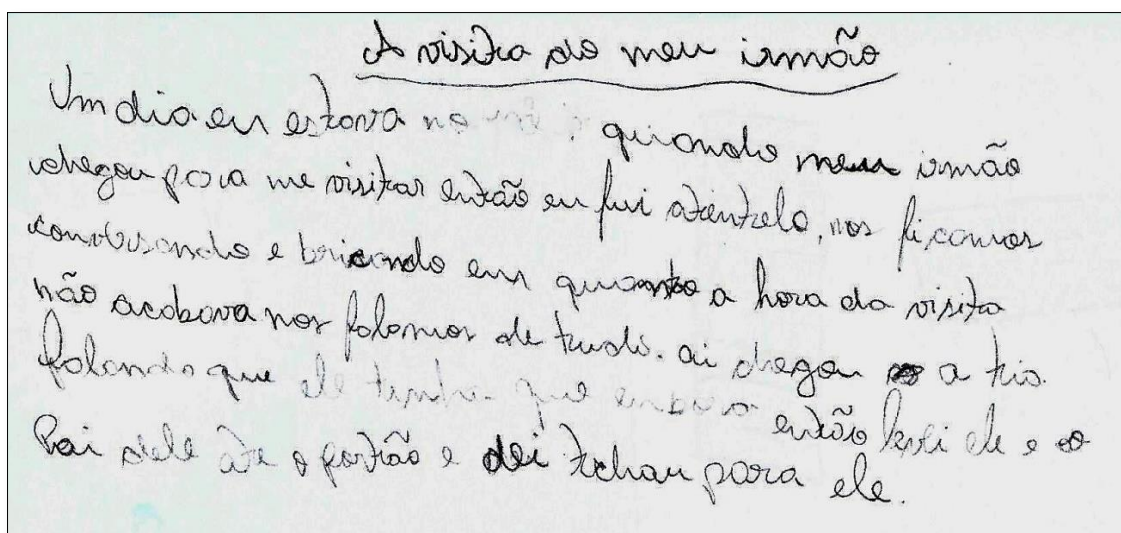 A visita do meu irmão
Um dia eu estava na quando meu irmão
chegou para me visitar então eu fui atentelo, nos ficamos
conversando e bricando em quanto a hora da visita
não acabava nos falamos de tudo. ai chegou a tia
falando que ele tinha que embora então levei ele e o
Pai dele ate o portão e dei tchau para ele.